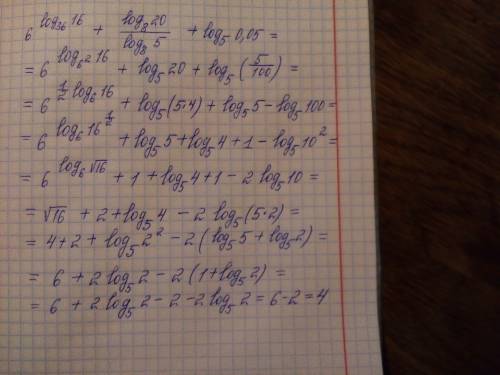 6^{log_{36} 16} + \frac{log_8 20}{log_8 5} + log_5 0,05 =
= 6^{log_{6^2} 16} + log_5 20 + log_5 (\frac{5}{100}) =
= 6^{\frac{1}{2} log_6 16} + log_5 (5·4) + log_5 5 - log_5 100 =
= 6^{log_6 16^{\frac{1}{2}}} + log_5 5 + log_5 4 + 1 - log_5 10^2 =
= 6^{log_6 √16} + 1 + log_5 4 + 1 - 2 log_5 10 =
= √16 + 2 + log_5 4 - 2 log_5 (5·2) =
= 4 + 2 + log_5 2^2 - 2 (log_5 5 + log_5 2) =
= 6 + 2 log_5 2 - 2 (1 + log_5 2) =
= 6 + 2 log_5 2 - 2 - 2 log_5 2 = 6 - 2 = 4